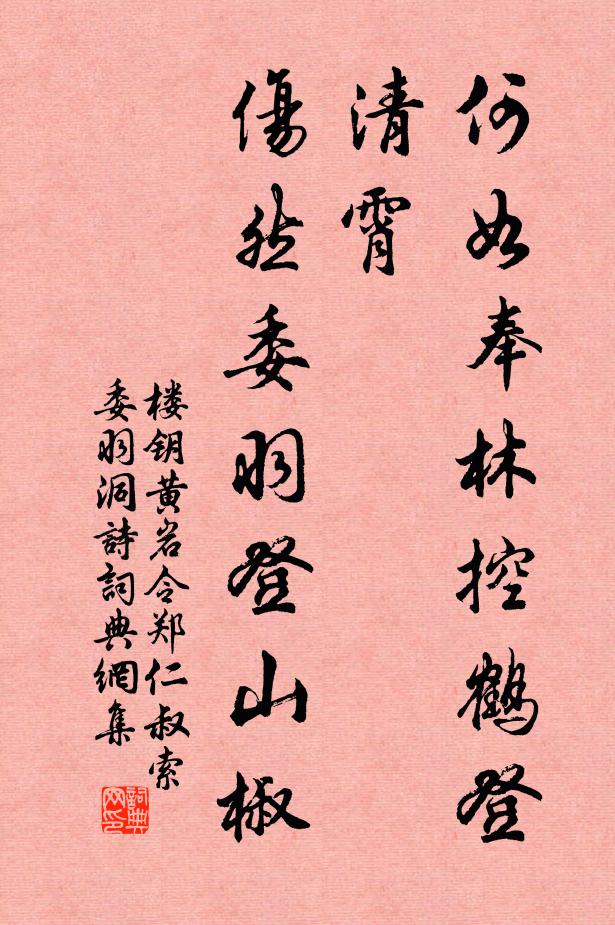 何如奉林控鶴登
清霄
傷然委羽登山椒
楼钥黄岩令郑仁叔索
委羽洞詩詞典網集
詞典
网印